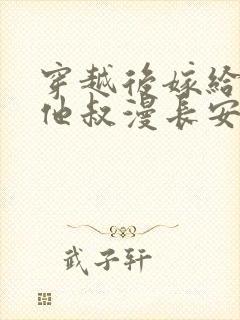 穿越後嫁給
他叔漫長安
武子軒